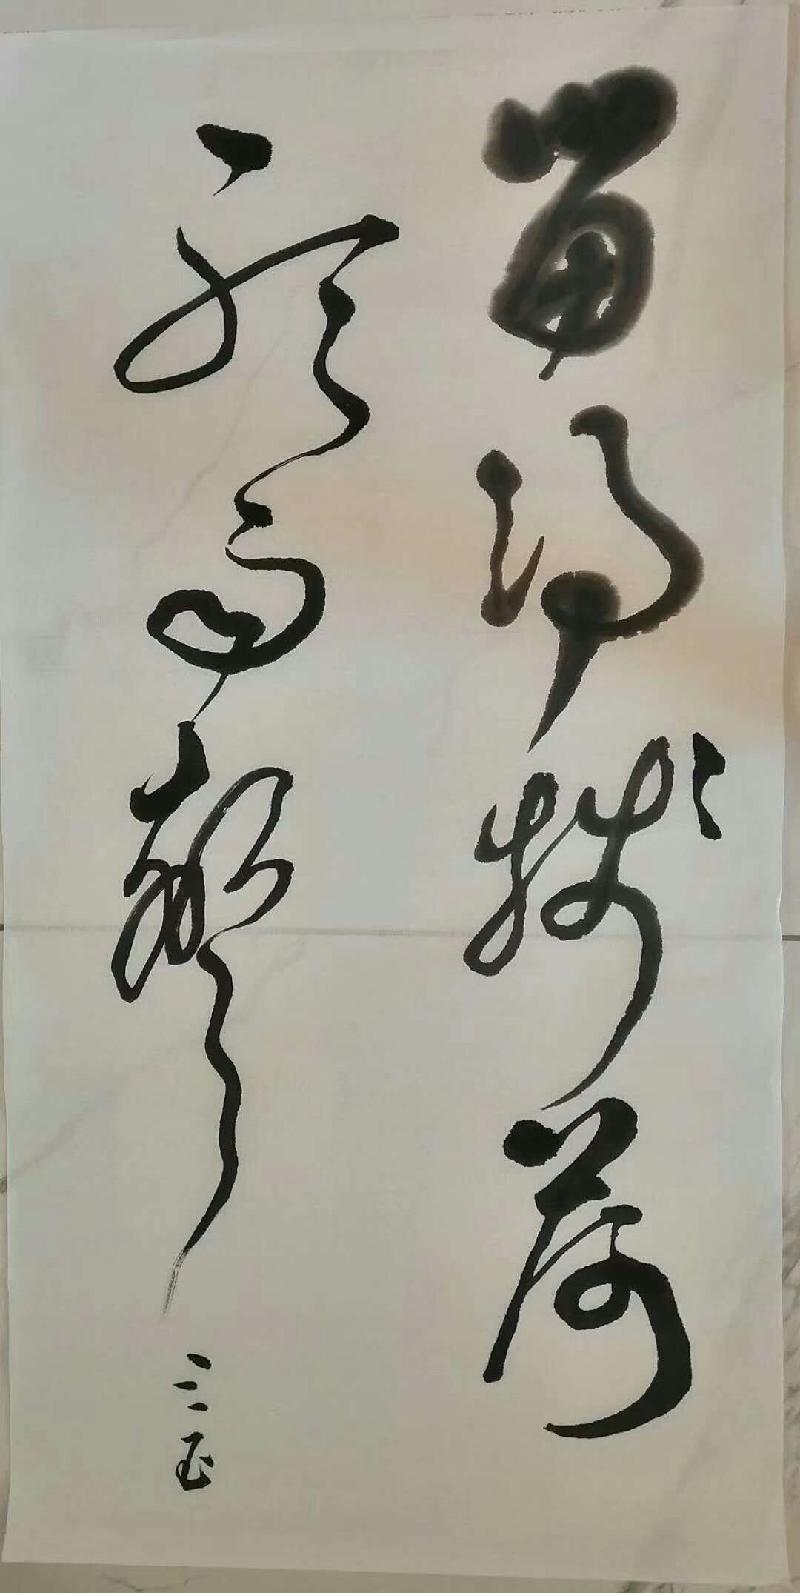 留得残荷
听雨声
三玉